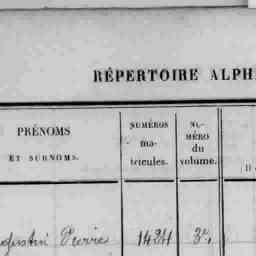 RÉPERTOIRE ALPH
PRÉNOMS
ET SURNOMS.
NUMÉROS
ma-
tricules.
NU-
MÉRO
du
volume.
Pierre 1424 3e